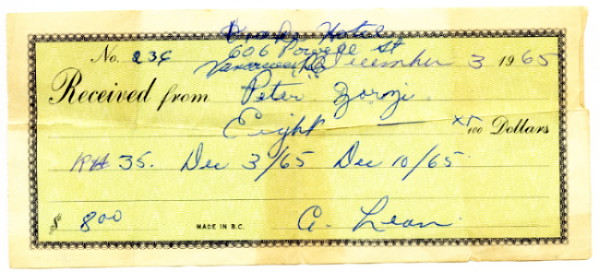 Hotel
606 Powell St
No. 236 Vancouver December 3 1965
Received from Peter
Eight xx/100 Dollars
35. Dec 3/65 Dec 10/65
$ 8.00 MADE IN B.C. A. Lean